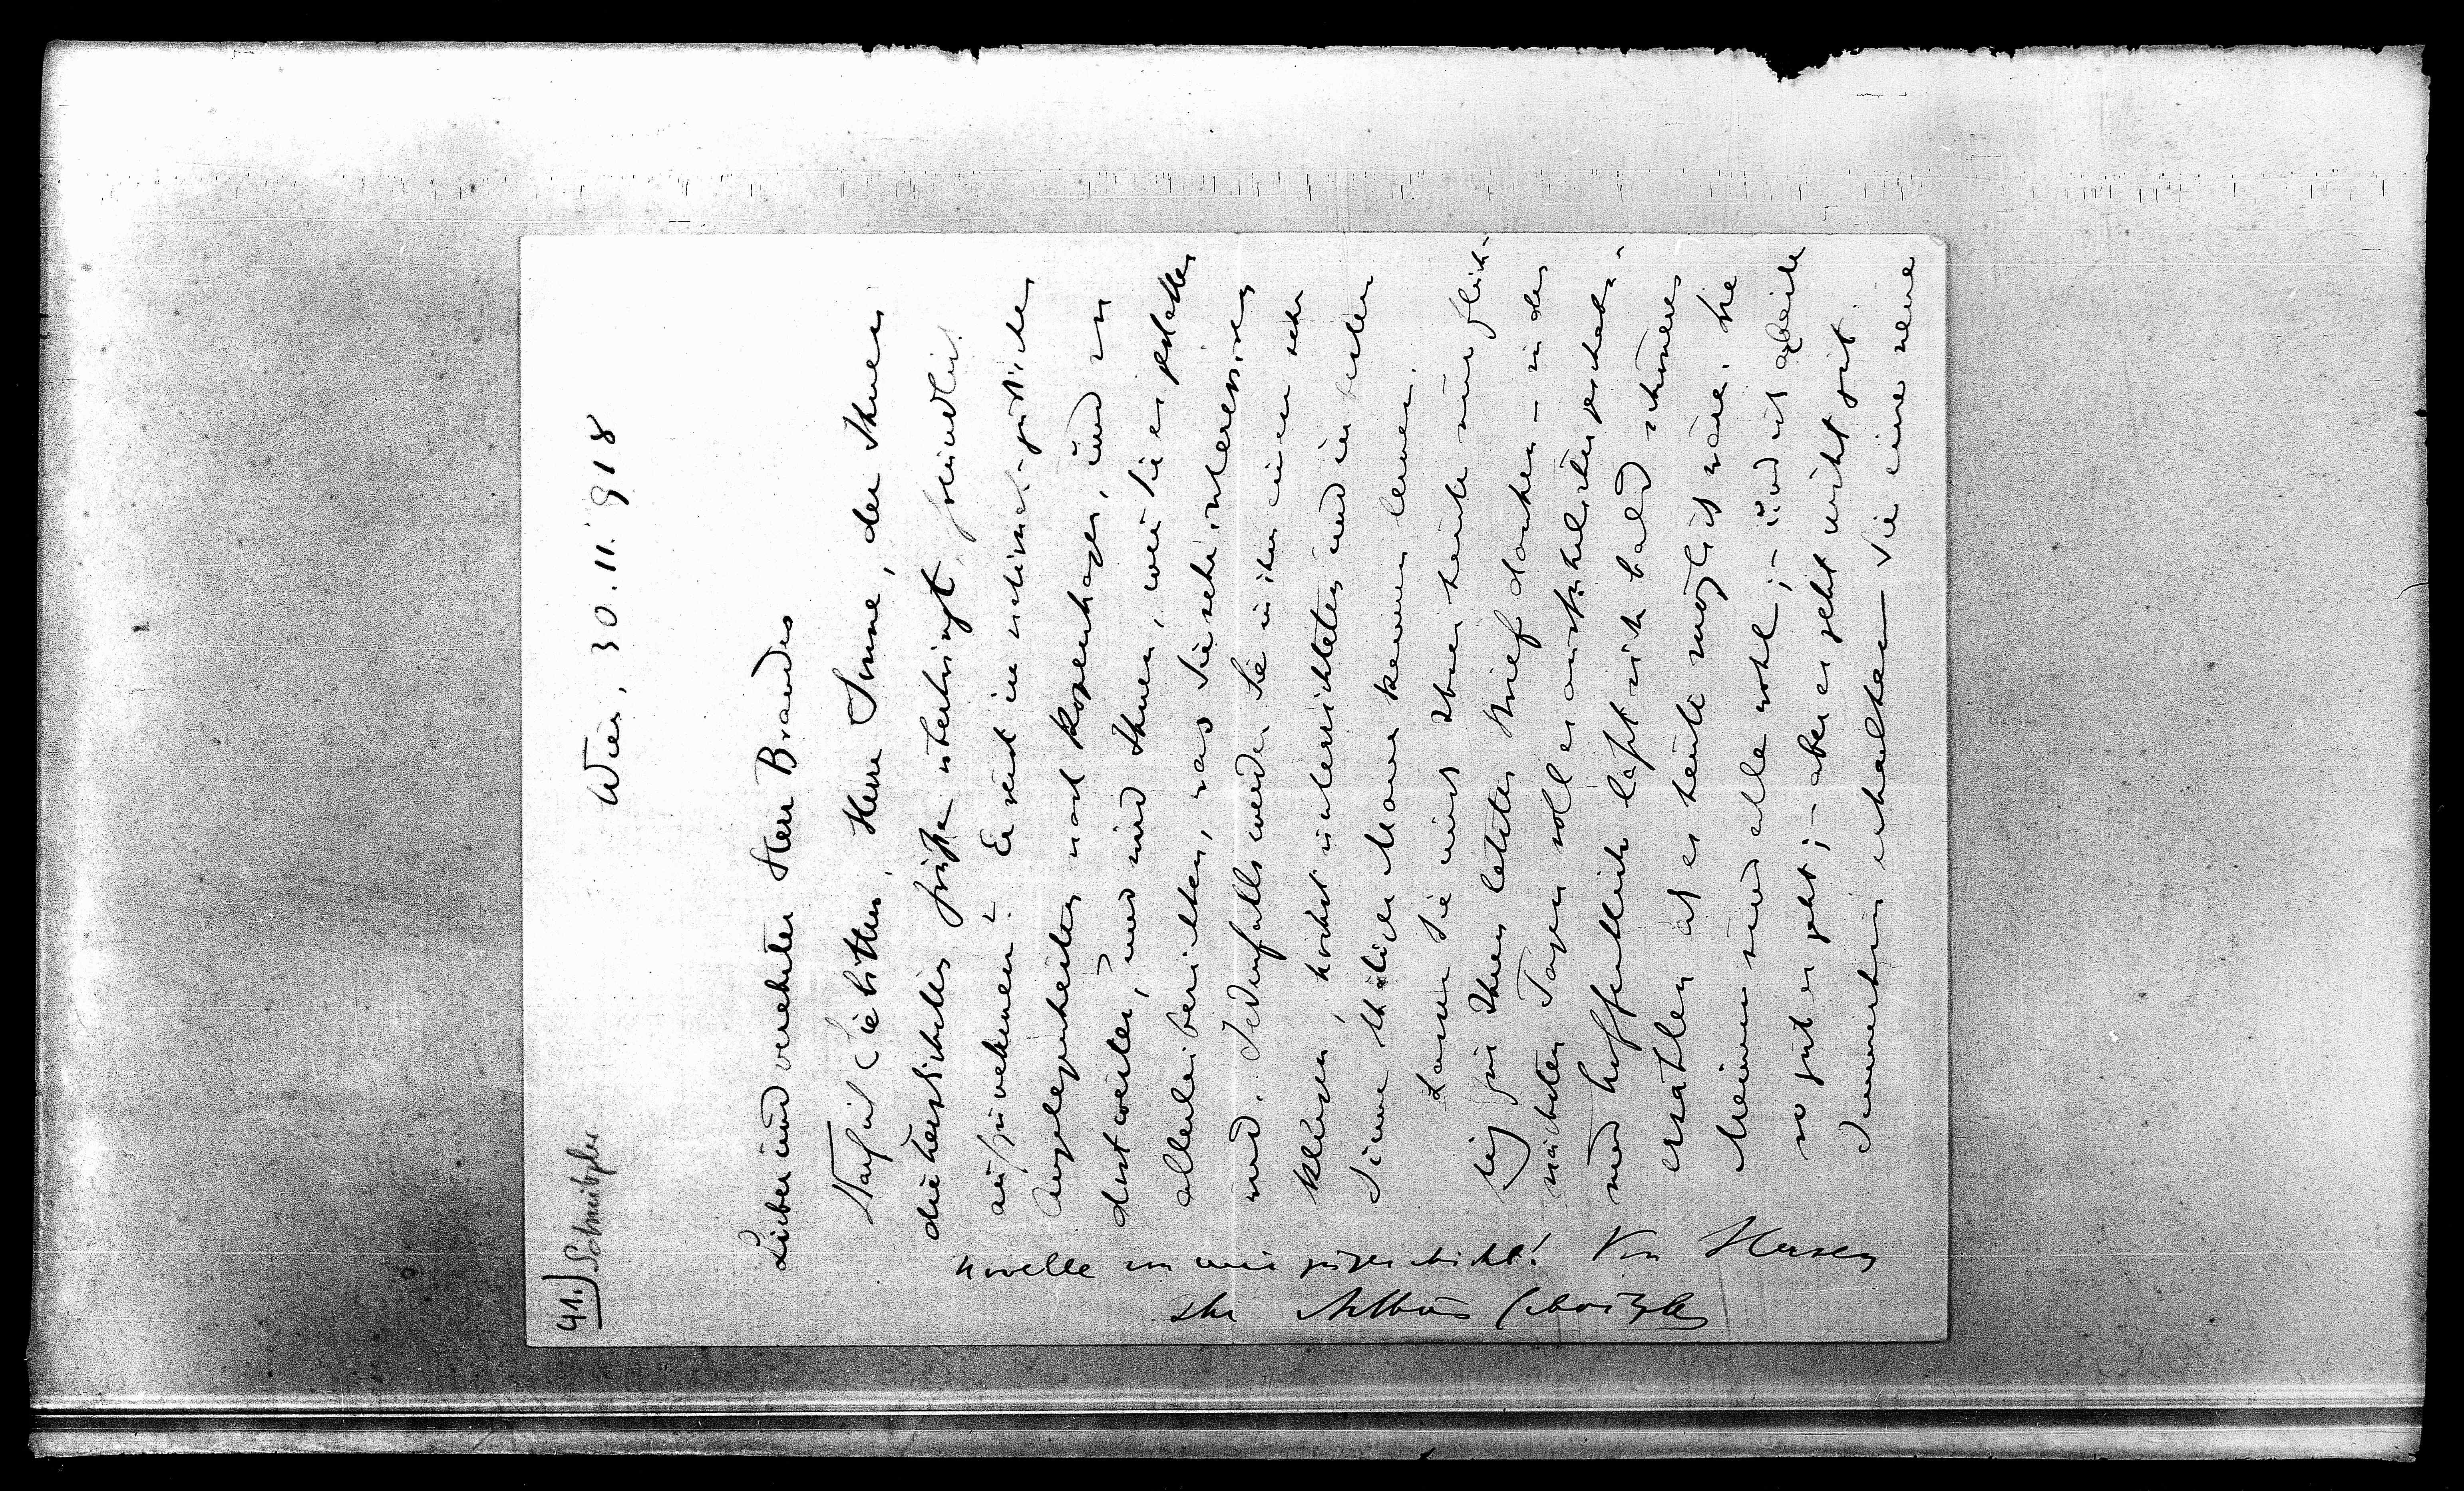 41.) Schnitzler
Wien, 30. 11. 918
Lieber und verehrter Herr Brandes
Darf ich Sie bitten, Herrn Sonne, der Ihnen
die herzlichsten Grüße überbringt, freundlich
aufzunehmen? Er reist in
Angelegenheiten nach Kopenhagen, und
dort weilen, und wird Ihnen, wenn Sie es gestatten
allerlei berichten, was Sie sehr interessiren
wird. Jedenfalls werden Sie in ihm einen sehr
klugen, höchst unterrichteten und im besten
Sinne thätigen Mann kennen lernen.
Lassen Sie mich Ihnen heute nur flüch-
tig für Ihren letzten Brief danken – in den
nächsten Tagen soll es ausführlicher geschehn –
und hoffentlich läßt sich bald schöneres
erzählen als es heute möglich wäre. Die
Meinen sind alle wohl; – und ich arbeite
so gut es geht; – aber es geht nicht gut.
Immerhin erhalten Sie eine neue
Novelle von mir zugeschickt! Von Herzen
Ihr Arthur Schnitzler